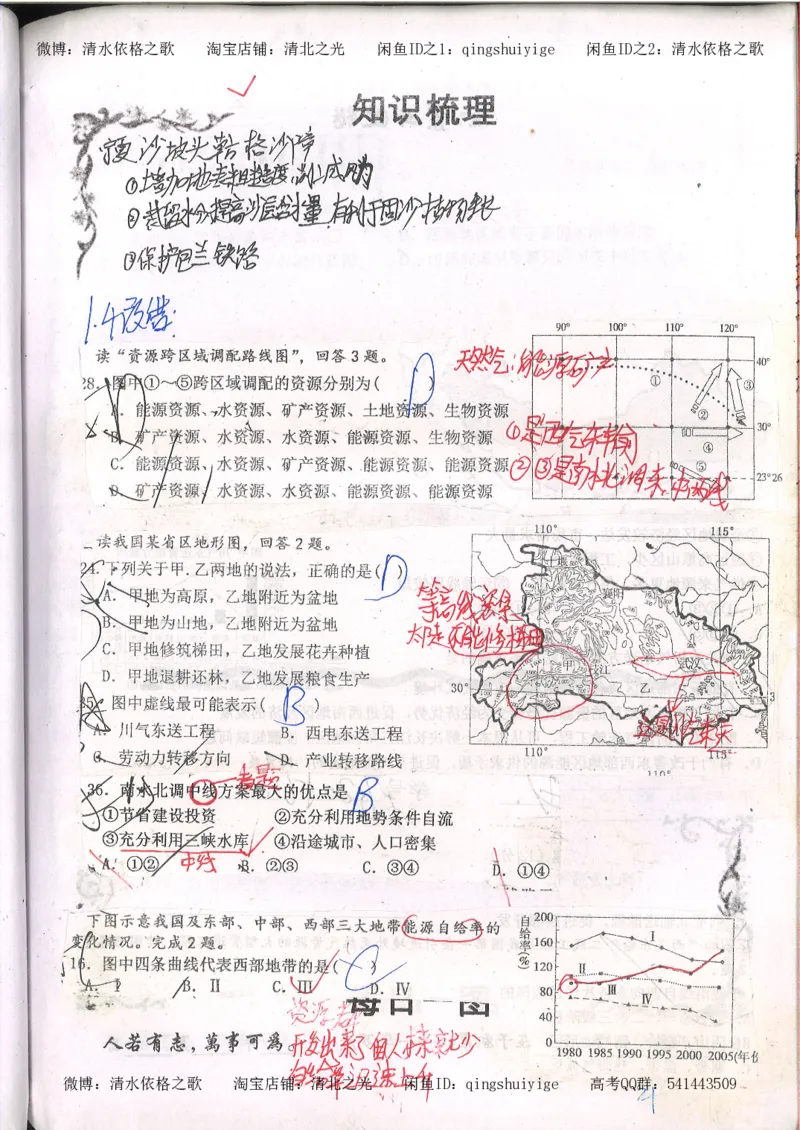 微博：清水依格之歌 淘宝店铺：清北之光 闲鱼ID之1：qingshuiyige 闲鱼ID之2：清水依格之歌
知识梳理
沙坡头 格沙障
①增加地表粗糙度，
②截留水分提高沙层含水量，有利于固沙植物生长
③保护包兰铁路
1.4改错：
读“资源跨区域调配路线图”，回答3题。
28. 图中①～⑤跨区域调配的资源分别为( D )
A. 能源资源、水资源、矿产资源、土地资源、生物资源
B. 矿产资源、水资源、水资源、能源资源、生物资源
C. 能源资源、水资源、矿产资源、能源资源、能源资源
D. 矿产资源、水资源、水资源、能源资源、能源资源
天然气：能源矿产
①是西气东输
②③是南水北调东、中两线
90° 100° 110° 120°
40°
30°
23°26
① ② ③ ④ ⑤
读我国某省区地形图，回答2题。
24. 下列关于甲、乙两地的说法，正确的是( D )
A. 甲地为高原，乙地附近为盆地
B. 甲地为山地，乙地附近为盆地
C. 甲地修筑梯田，乙地发展花卉种植
D. 甲地退耕还林，乙地发展粮食生产
等高线密集
太陡不能修梯田
35. 图中虚线最可能表示( B
A. 川气东送工程 B. 西电东送工程
C. 劳动力转移方向 D. 产业转移路线
110° 115°
襄阳
甲 长江 武汉
30° 乙
110° 115°
110°
36. 南水北调中线方案最大的优点是 B
①节省建设投资 ②充分利用地势条件自流
③充分利用三峡水库 ④沿途城市、人口密集
A. ①② 中线 B. ②③ C. ③④ D. ①④
下图示意我国及东部、中部、西部三大地带能源自给率的
变化情况。完成2题。
16. 图中四条曲线代表西部地带的是( C )
A. I B. II C. III D. IV
每日一图
人若有志，萬事可為。
资源
开发出来了但人
自给率
自给率(%)
200
160
120
80
40
0
I
II
III
IV
1980 1985 1990 1995 2000 2005(年份
微博：清水依格之歌 淘宝店铺：清北之光 闲鱼ID：qingshuiyige 高考QQ群：541443509